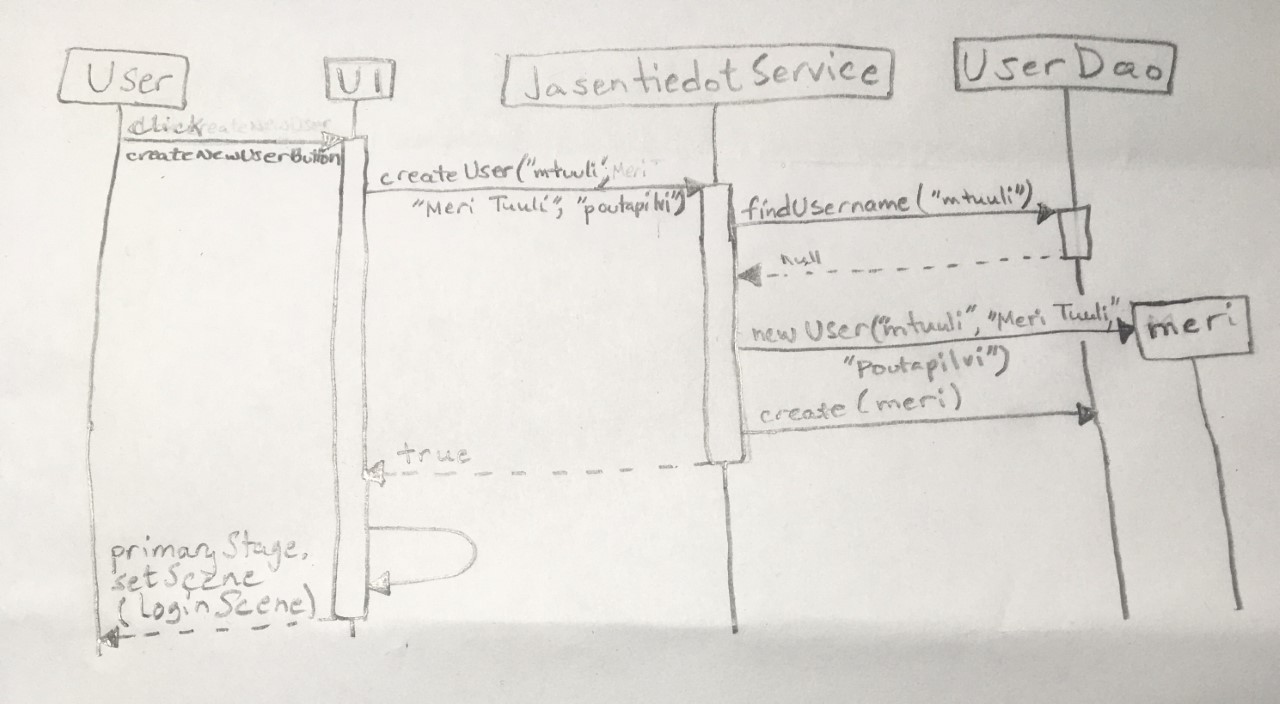 User
UI
JasentiedotService
UserDao
click
createNewUser
createNewUserButton
createUser("mtuuli", Meri T
"Meri Tuuli", "poutapilvi")
findUsername("mtuuli")
null
new User("mtuuli", "Meri Tuuli",
"Poutapilvi")
meri
create(meri)
true
primaryStage.
setScene
(loginScene)